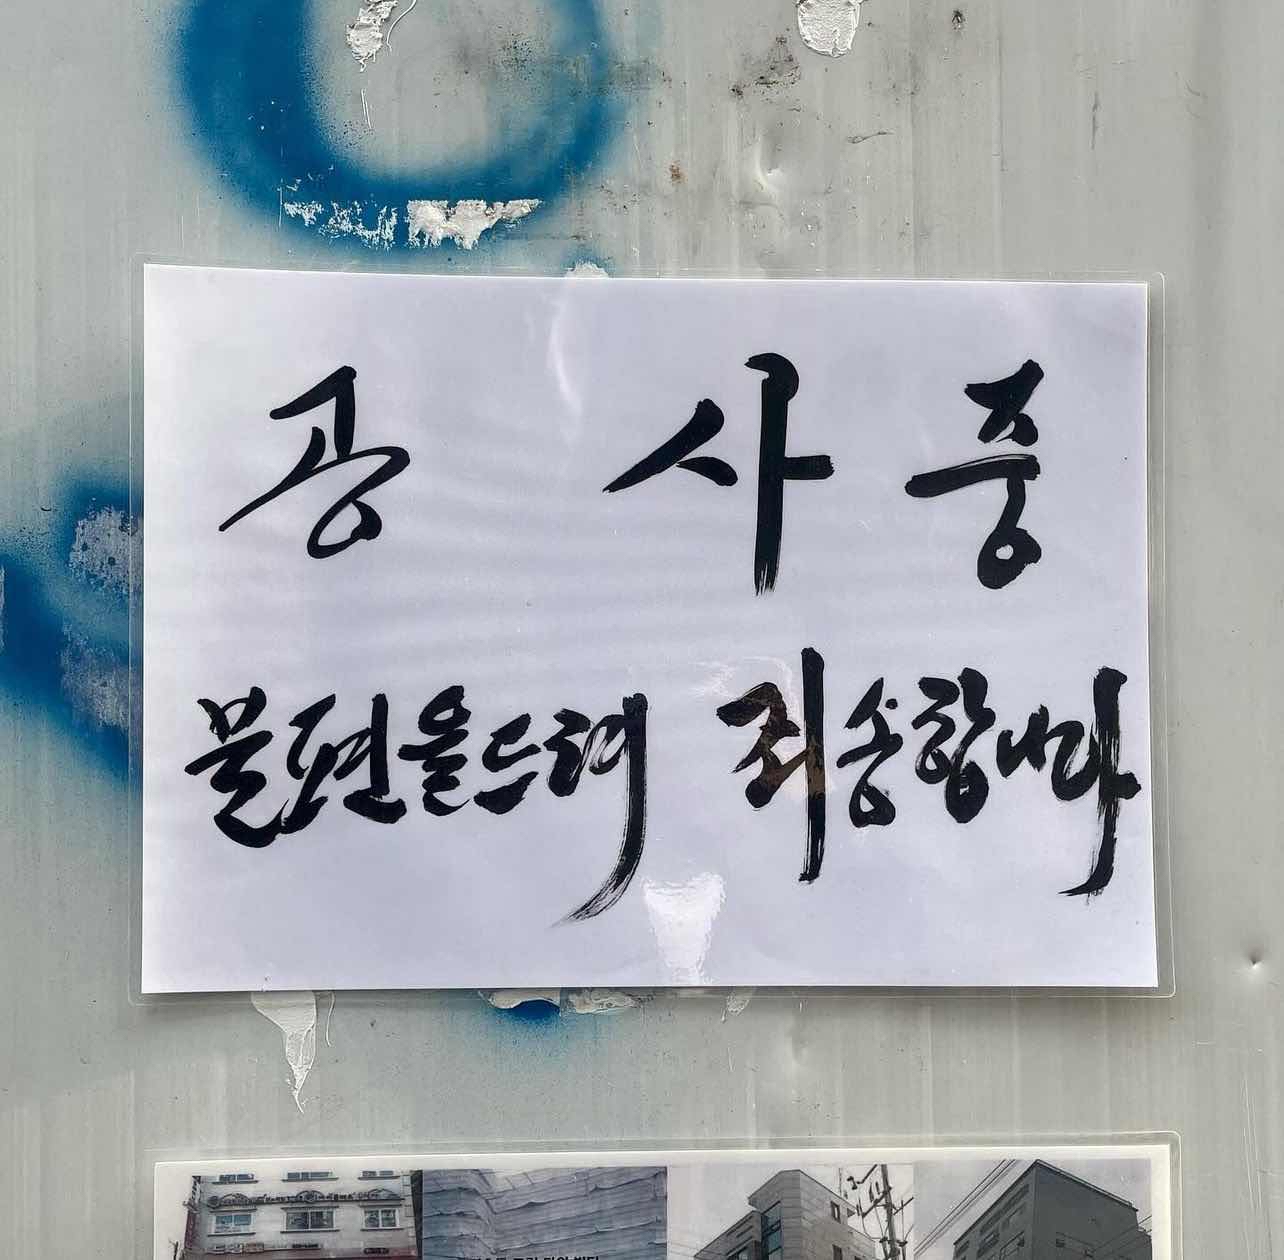 공 사 중
불편을드려 죄송합니다